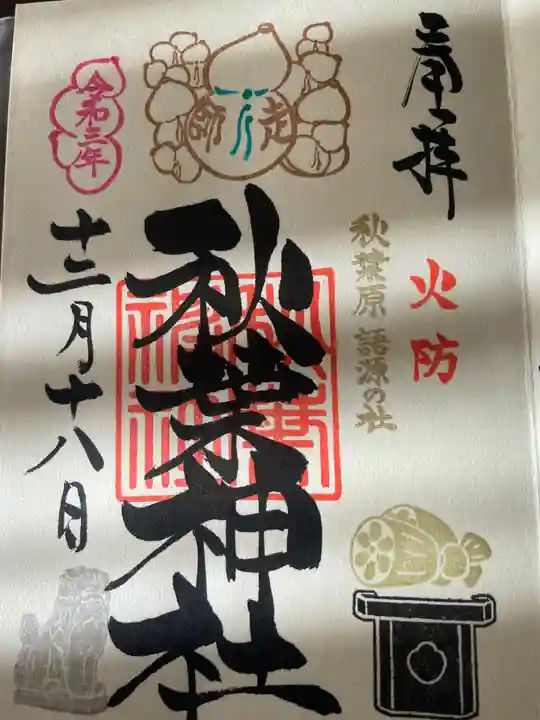 奉拝
火防
秋葉原 語源の社
師走
秋葉神社
令和三年
十二月十八日